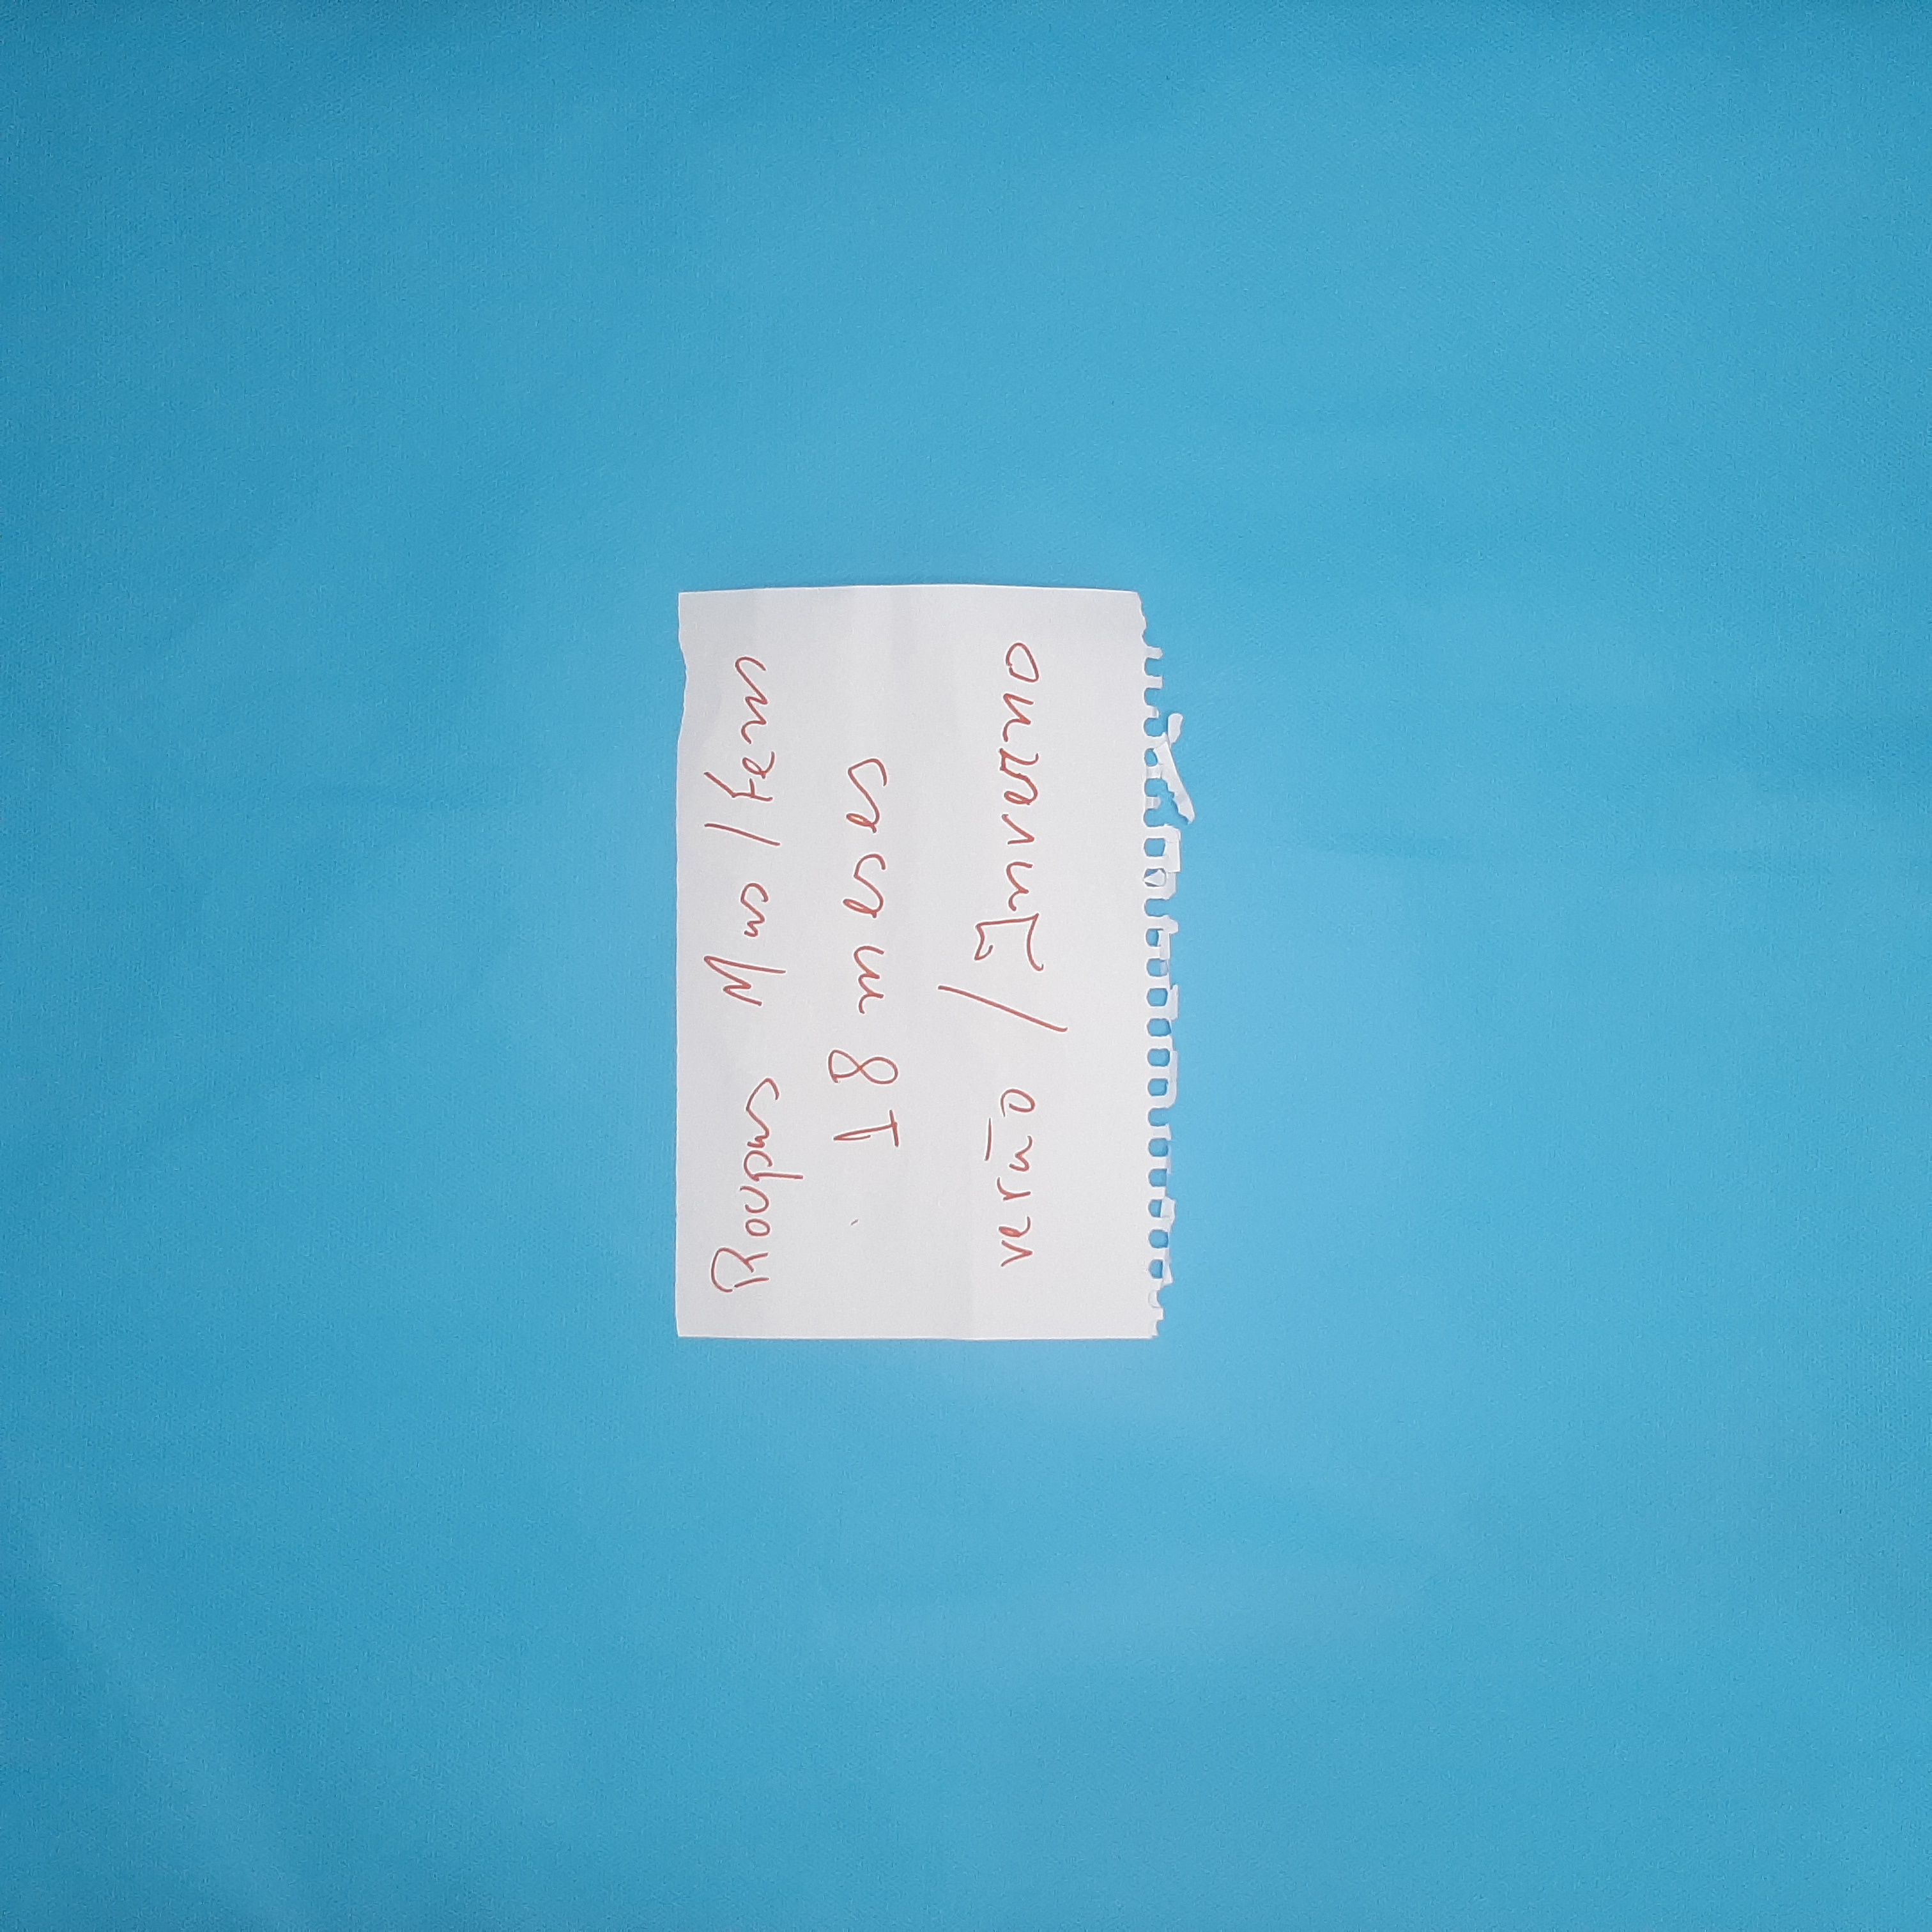 Roupas Mas / Fem
18 meses
verão / Inverno